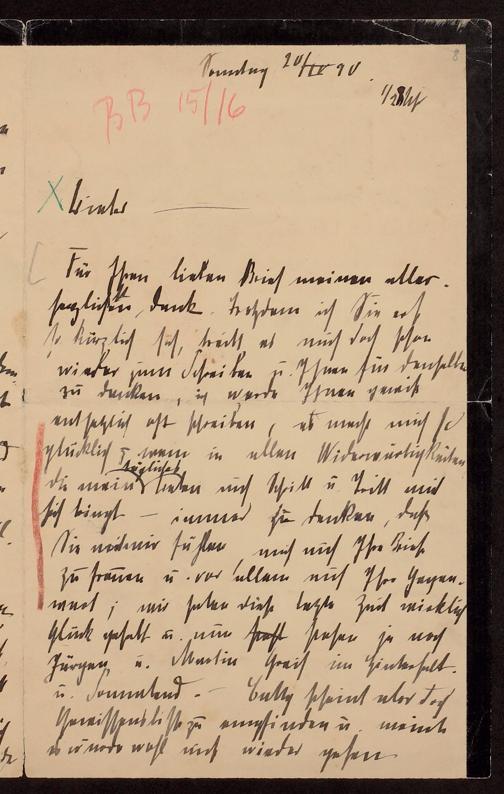 8
Sonntag 20/IV 90.
1/2 8 Uhr
BB 15/16
X Lieber
Für Ihren lieben Brief meinen aller-
herzlichsten Dank. Trotzdem ich Sie erst
so kürzlich sah, treibt es mich doch schon
wieder zum Schreiben u. Ihnen für denselben
zu danken, ich werde Ihnen gewiß
entsetzlich oft schreiben, es macht mich so
glücklich wenn in allen Widerwärtigkeiten
die mein tägliches Leben auf Schritt u. Tritt mit
sich bringt – immer zu denken, daß
Sie mit mir fühlen, mich auf Ihre Briefe
zu freuen u. vor allem auf Ihre Gegen-
wart; wir haben diese letzte Zeit wirklich
Glück gehabt u. nun stehen ja noch
Jürgen u. Martin Greif im Hinterhalt.
u. Sonnabend. – scheint aber doch
Gewissensbisse zu empfinden u. meint
es würde wohl nicht wieder gehen